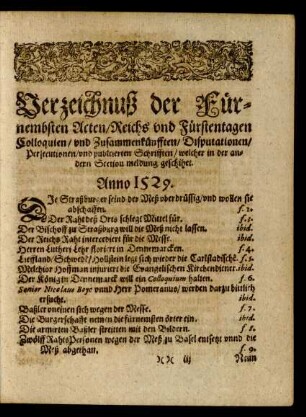 Verzeichnuß der Für-
nembsten Acten/Reichs vnd Fürstentagen
Colloquien/ vnd Zusammenkünfften/ Disputationen/
Persecutionen/vnd publicirten Schrifften/ welcher in der an-
dern Section meldung geschihet.
Anno 1529.
DIe Straßburger seind der Meß vberdrüssig/vnd wollen sie
abschaffen. f. 2.
Der Raht deß Orts schlegt Mittel für. f. 3.
Der Bischoff zu Straßburg will die Meß nicht lassen. ibid.
Der Reichs Raht intercedirt für die Messe. ibid.
Herren Luthers Lehr florirt in Dennemarcken. f. 4.
Lieffland/ Schwed/ Hollstein legt sich wieder die Carlstadische. f. 5.
Melchior Hoffman injurirt die Evangelischen Kirchendiener. ibid.
Der König in Dennemarck will ein Colloquium halten. f. 6.
Nicolaus Boye vnnd Herr Pomeranus/ werden darzu bittlich
ersucht. ibid.
Baßler vneinen sich wegen der Messe. f. 7.
Die Burgerschafft nemen die fürnembsten örter ein. ibid.
Die armirten Baßler streitten mit den Bildern. f. 8.
Zwölff RahtsPersonen wegen der Meß zu Basel entsetzt vnnd die
Meß abgethan. f. 9.
)( )( iij Neun